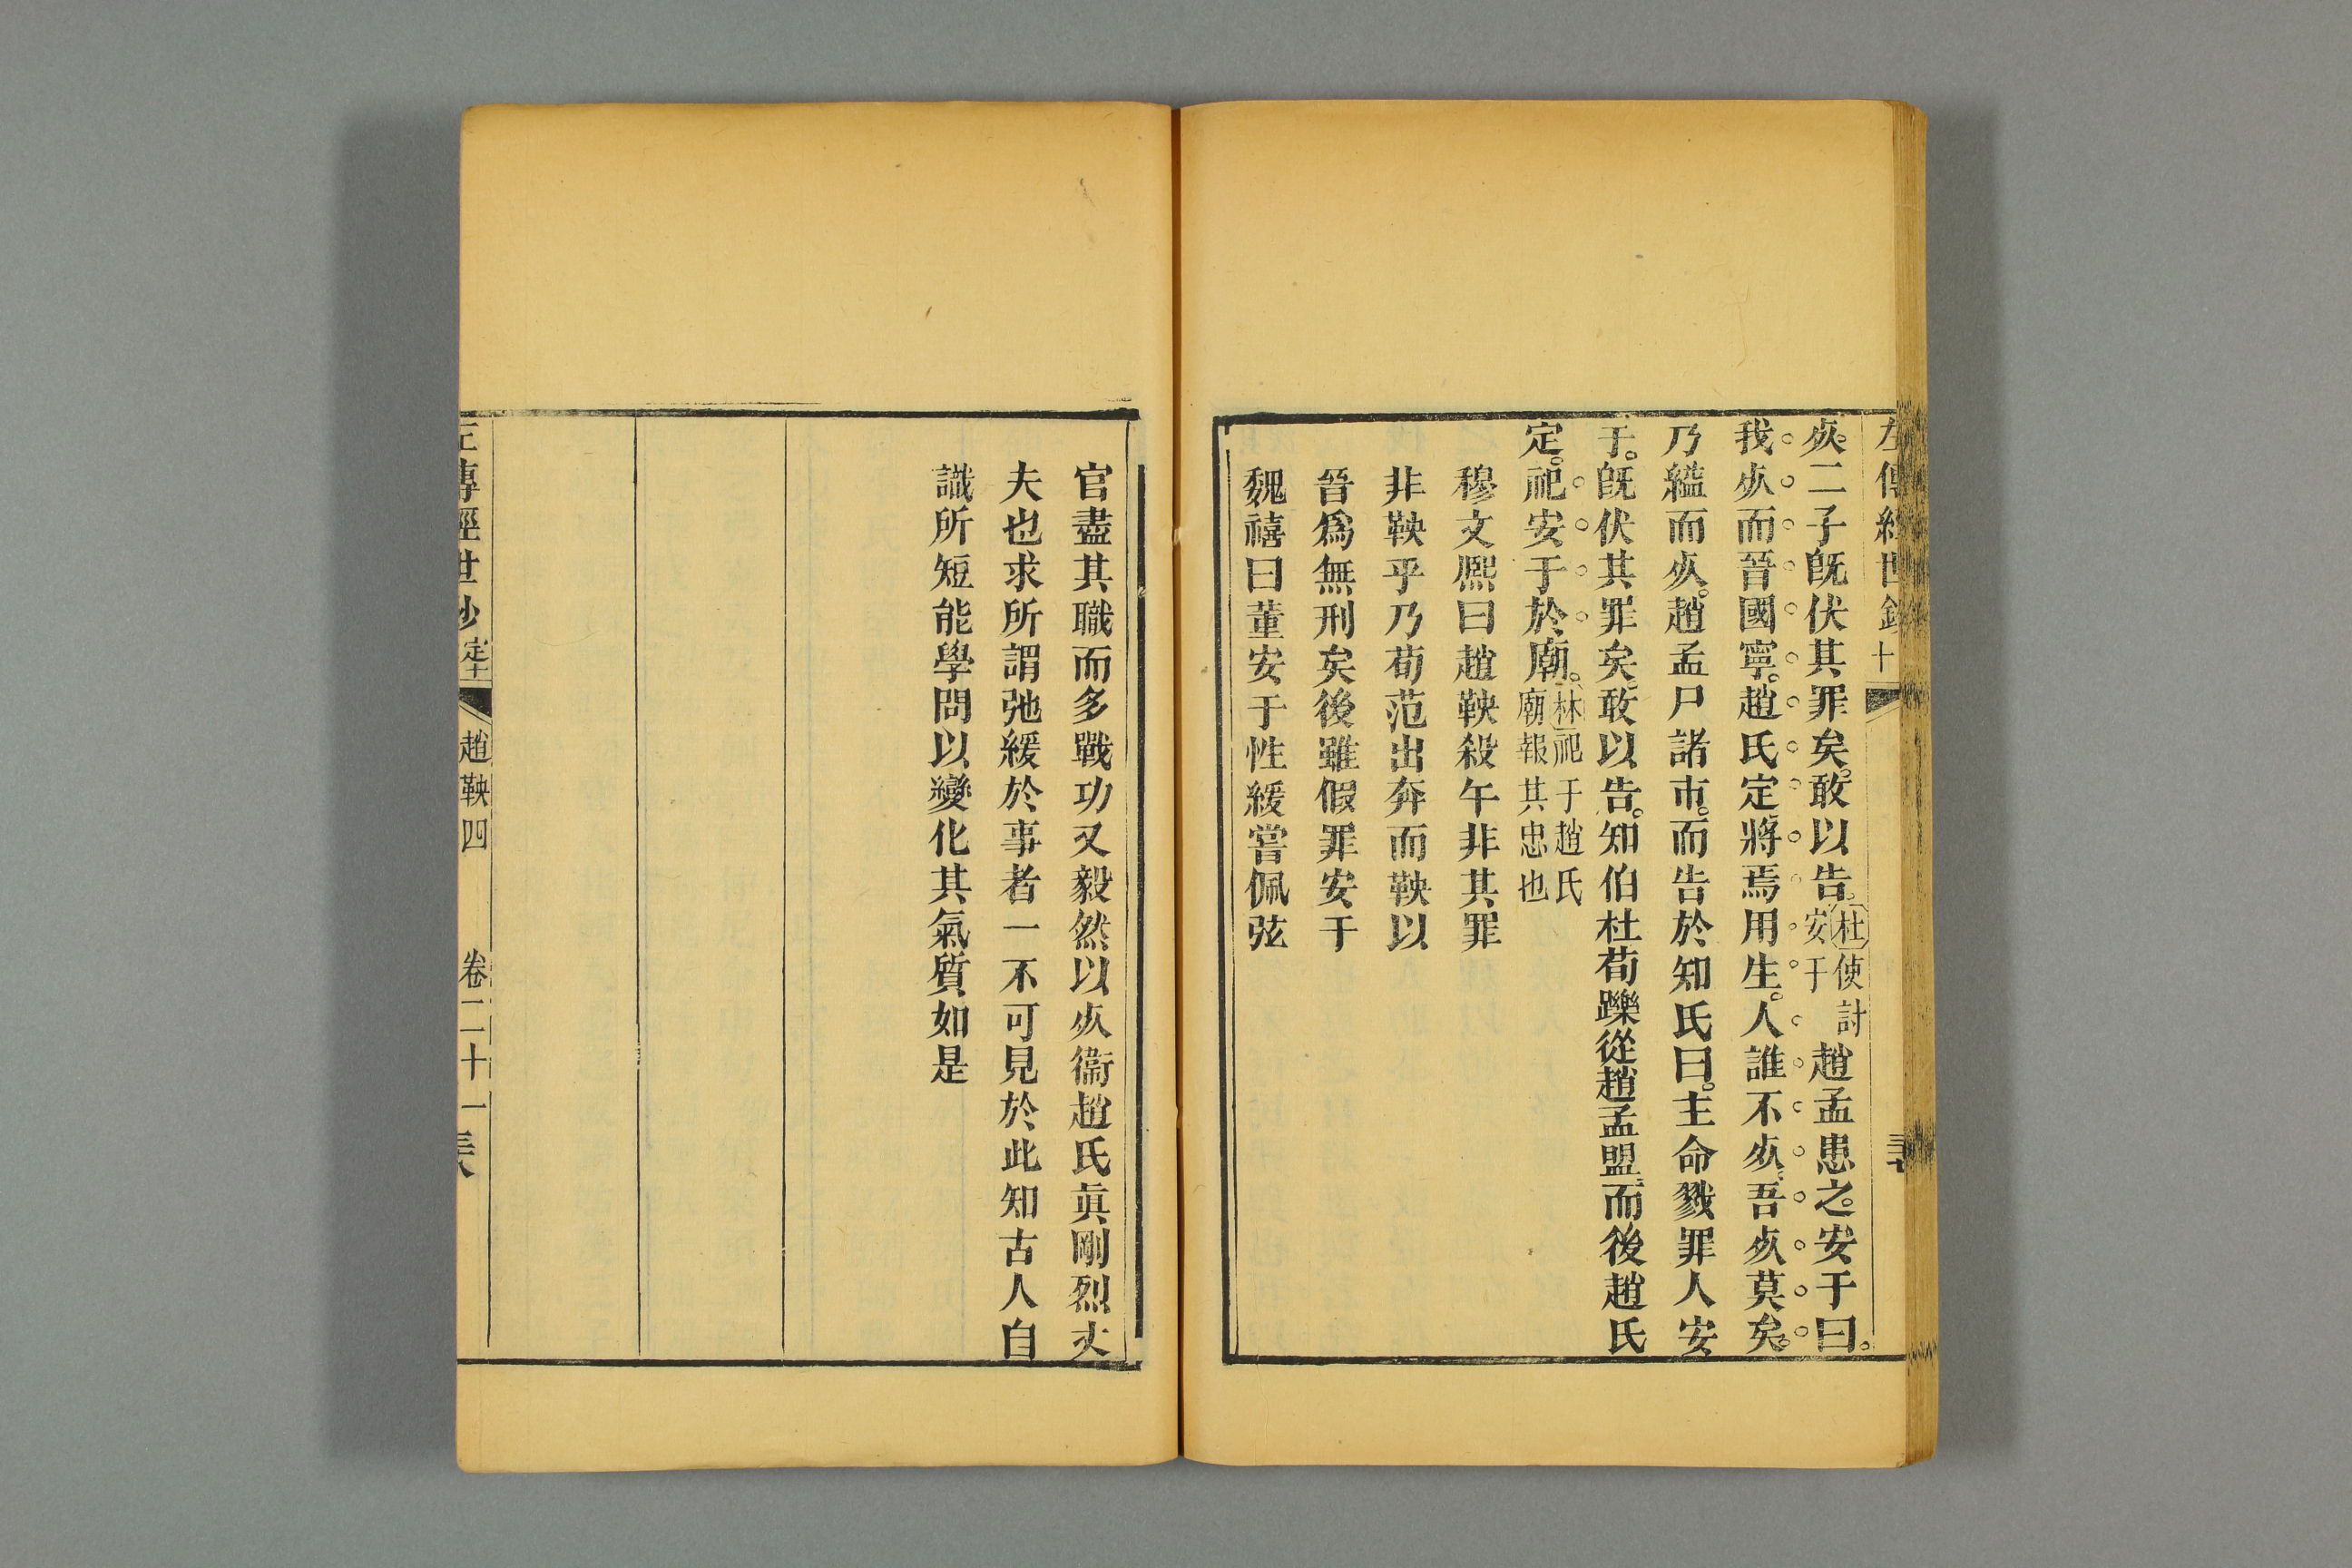 左傳經世鈔 十
死二子旣伏其罪矣敢以告杜使討安于趙孟患之安于曰
我死而晉國寧趙氏定將焉用生人誰不死吾死莫矣
乃縊而死趙孟尸諸市而告於知氏曰主命戮罪人安
于旣伏其罪矣敢以告知伯杜荀躒從趙孟盟而後趙氏
定祀安于於廟林祀于趙氏廟報其忠也
穆文熙曰趙鞅殺午非其罪
非鞅乎乃荀范出奔而鞅以
晉爲無刑矣後雖假罪安于
魏禧曰董安于性緩嘗佩弦
官盡其職而多戰功又毅然以死衞趙氏眞剛烈丈
夫也求所謂弛緩於事者一不可見於此知古人自
識所短能學問以變化其氣質如是
左傳經世鈔 定十 趙鞅四 卷二十一